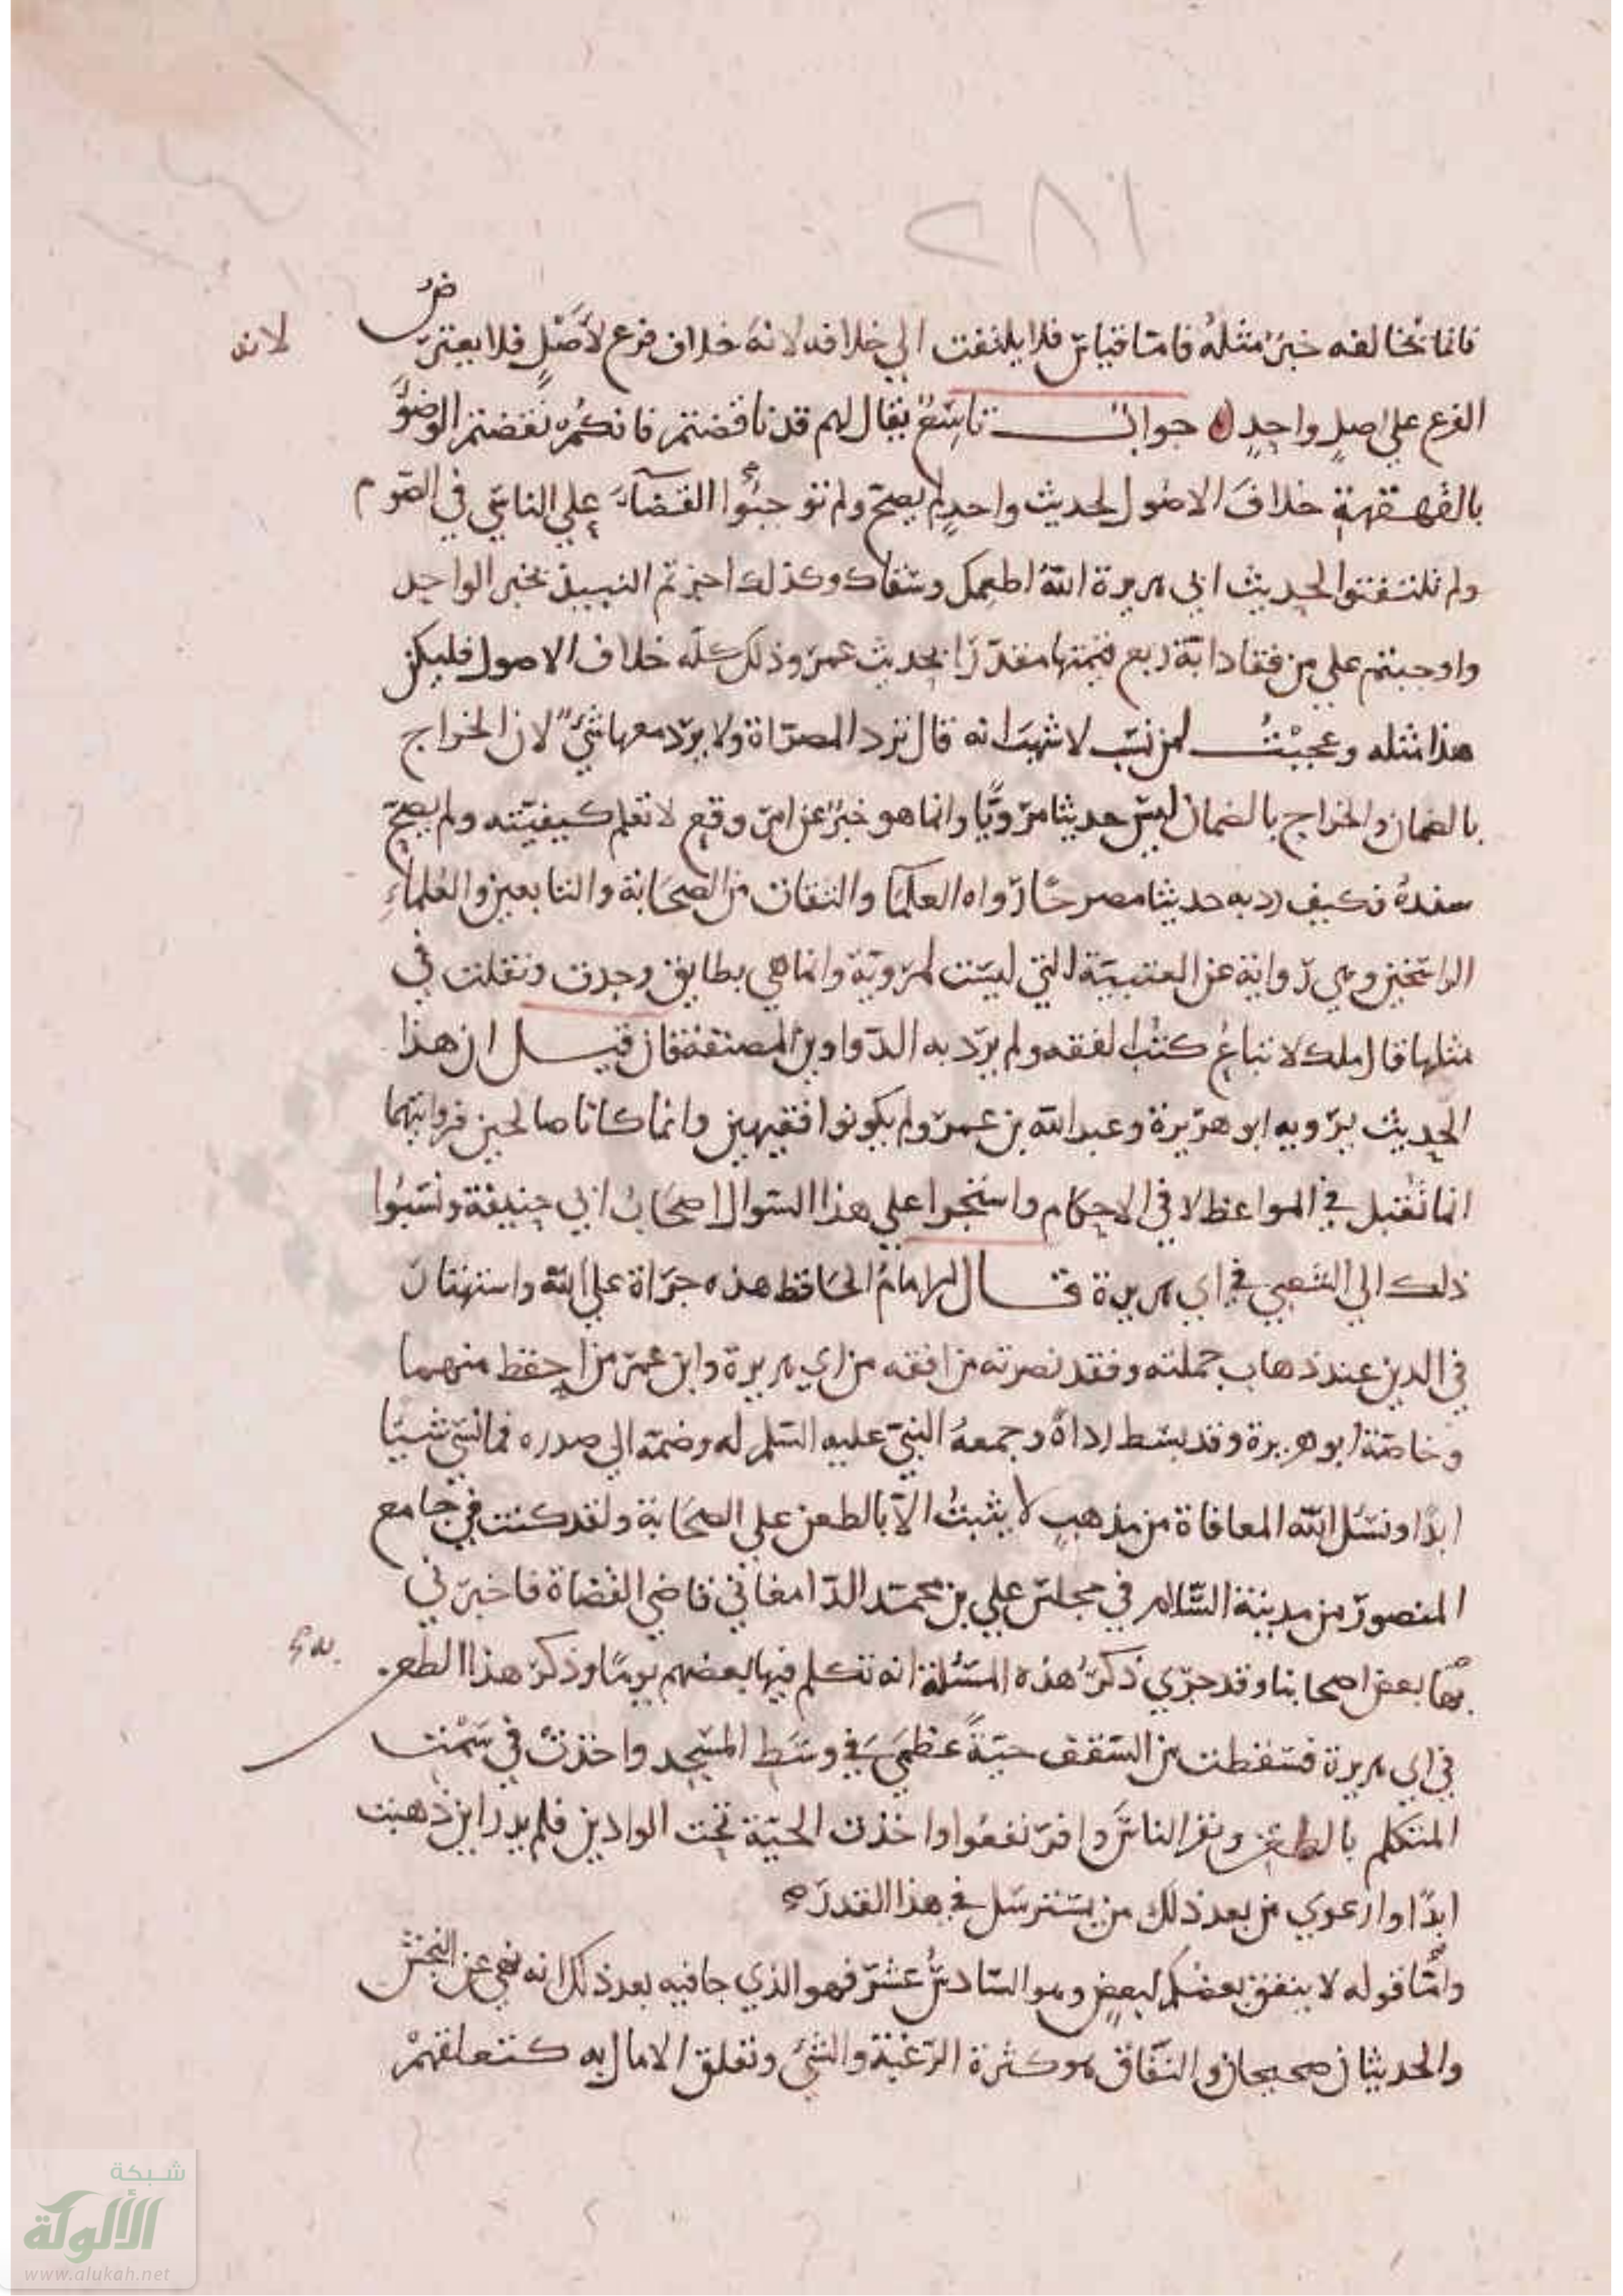 ٢٨١
فانما يخالفه خبر مثله فاما قياس فلا يلتفت الي خلافه لانه خلاف فرع لأصل فلا يعترض
لانه
الفرع علي اصل واحد جواب تاسع يقال لهم قد ناقضتم فانكم نقضتم الوضوء
بالقهقهة خلاف الاصول لحديث واحد لم يصح ولم توجبوا القضآء علي الناسي في الصوم
ولم تلتفتوا لحديث ابي هريرة الله اطعمك وسقاك وكذلك اجزتم النبيذ بخبر الواحد
واوجبتم علي من فقا دابة ربع قيمتها مقدرا بحديث عمر وذلك كله خلاف الاصول فليكن
هذا مثله وعجبت لمن نسب لاشهب انه قال ترد المصراة ولا يرد معها شئ لان الخراج
بالضمان والخراج بالضمان ليس حديثا مرويا وانما هو خبر عن امر وقع لا تعلم كيفيته ولم يصح
سنده فكيف رد به حديثا مصرحا رواه العلما والثقات من الصحابة والتابعين والعلماء
الراسخين وهي رواية عن العتبية التي ليست لمروية وانما هي بطايق وجدت ونقلت في
مثلها قال ملك لا تباع كتب الفقه ولم يرد به الدواوين المصنفة فان قيل ان هذا
الحديث يرويه ابو هريرة وعبد الله بن عمر ولم يكونوا فقيهين وانما كانا صالحين فروايتهما
انما تقبل في المواعظ لا في الاحكام واستجرا علي هذا السوال اصحاب ابي حنيفة ونسبوا
ذلك الي الشعبي في ابي هريرة قال الامام الحافظ هذه جراة علي الله واستهتار
في الدين عند ذهاب حملته وفقد نصرته من افقه من ابي هريرة وابن عمر من احفظ منهما
وخاصة ابو هريرة وقد بسط رداه وجمعه النبي عليه السلم له وضمه الي صدره فما نسي شيا
ابدا ونسئل الله المعافاة من مذهب لا يثبت الا بالطعن علي الصحابة ولقد كنت في جامع
المنصور من مدينة السلام في مجلس علي بن محمد الدامغاني قاضي القضاة فاخبرني
بها بعض اصحابنا وقد جري ذكر هذه المسئلة انه تكلم فيها بعضهم يوما وذكر هذا الطعن
في ابي هريرة فسقطت من السقف حية عظمي في وسط المسجد واخذت في سمت
المتكلم بالطعن ونفر الناس وافرنقعوا واخذت الحية تحت الوادين فلم يدر اين ذهبت
ابدا وارعوي من بعد ذلك من يسترسل في هذا القدر
وأما قوله لا ينفق بعضكم لبعض وهو السادس عشر فهو الذي جا فيه بعد ذلك انه نهي عن النجش
والحديثان صحيحان والنفاق هو كثرة الرغبة والشئ وتعلق الامال به كتعلقهم
شبكة
الألوكة
www.alukah.net